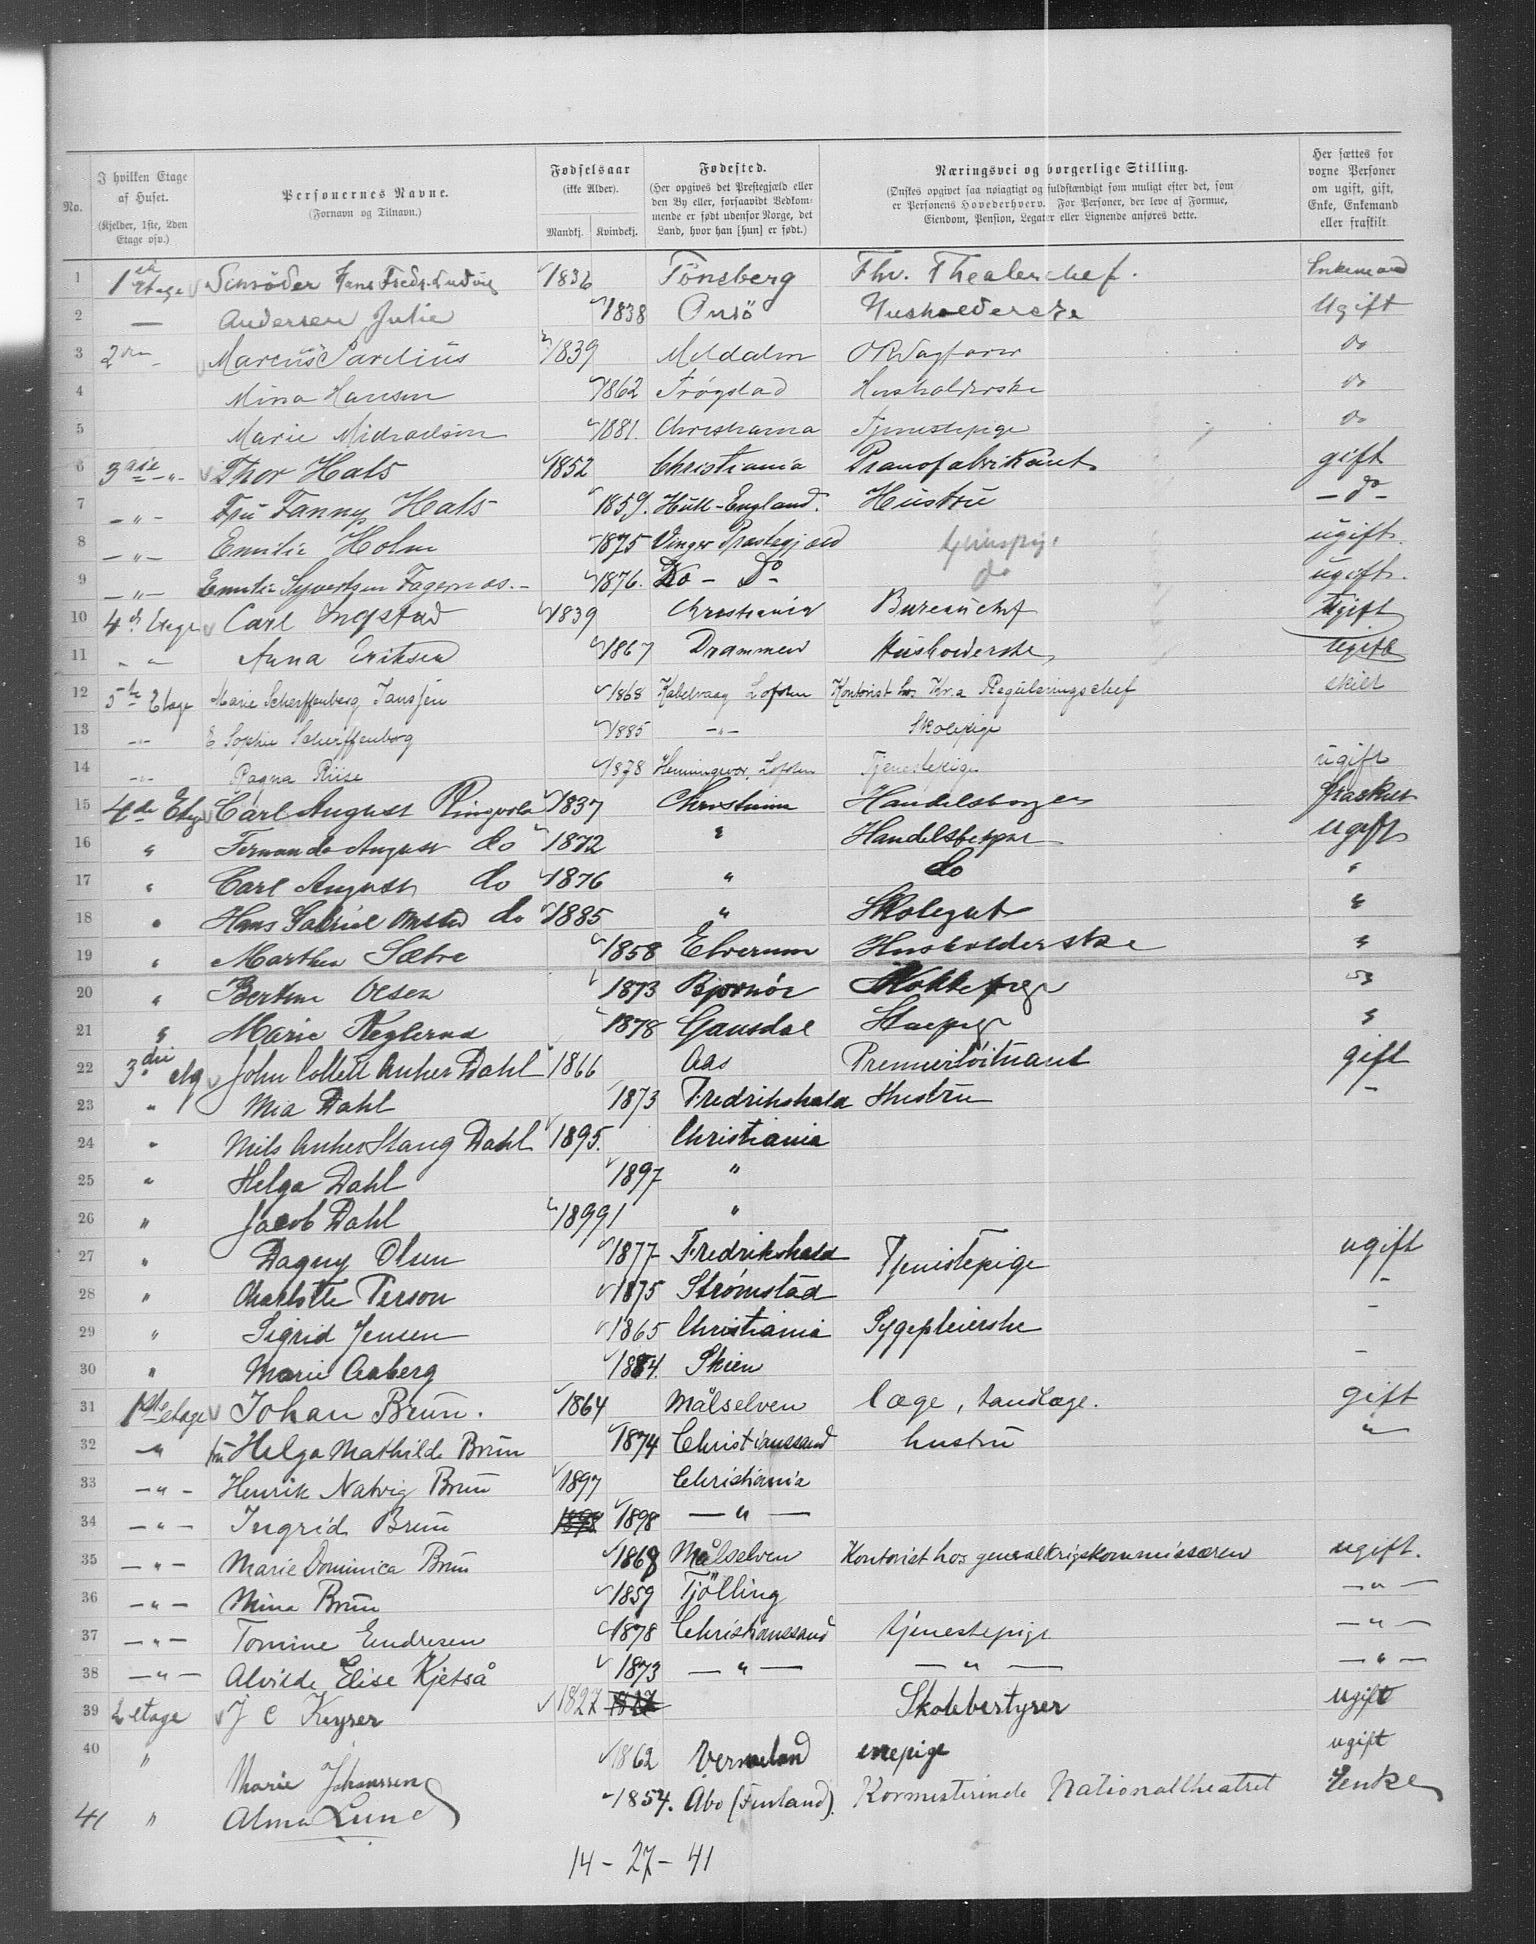 No.
I hvilken Etage af Huset.
(Kjelder, 1ste, 2den Etage osv.)
Personernes Navne.
(Fornavn og Tilnavn.)
Fødselsaar
(ikke Alder).
Mandkj. Kvindekj.
Fødested.
(Her opgives det Prestegjæld eller den By eller, forsaavidt Vedkommende er født udenfor Norge, det Land, hvor han [hun] er født.)
Næringsvei og borgerlige Stilling.
(Ønskes opgivet saa nøiagtigt og fuldstændigt som muligt efter det, som er Personens Hovederhverv. For Personer, der leve af Formue, Eiendom, Pension, Legater eller Lignende anføres dette.
Her sættes for voxne Personer om ugift, gift, Enke, Enkemand eller fraskilt.
1 1ste Etage Schrøder Hans Fredr. Ludvig 1836 Tønsberg Fhv. Theaterchef. Enkemand
2 — Andersen Julie 1838 Onsö Husholderske Ugift
3 2den Marcus Parelius 1839 Meldalen do
4 Mina Hansen 1862 Trögstad Husholderske do
5 Marie 1881. Christiania Tjenestepige do
6 3die -"- Thor Hals 1852 Christiania Pianofabrikant gift
7 -"- Fru Fanny Hals 1859. Hull-England. Hustru - do -
8 -"- Emilie Holm 1875 Vinger Præstegjæld ugift.
9 -"- Emilie Syvertsen Fagernæs. 1876. Do - Do - do ugift.
10 4d Etage Carl Ingstad 1839 Christiania Bureauchef Ugift
11 " - Anna Eriksen 1867 Drammen Husholderske, Ugift
12 5te Etage Marie Scherffenberg Janssen 1868 Kabelvaag Lofoten Kontorist hos Kr.a Reguleringschef skilt
13 -"- E Sophie Scherffenberg 1885 -"- Skolepige
14 -"- Ragna Riise 1878 Henningsvær, Lofoten Tjenestepige ugift
15 4de Etg Carl August Ringvold 1837 Christiania Handelsborger fraskilt
16 " Fernando August do 1872 " Handelsbetjent ugift
17 " Carl August do 1876 " do "
18 " Hans Gabriel do 1885 " Skolegut "
19 " Marthea Sætre 1858 Elverum Husholderske "
20 " Bertine Olsen 1873 Bjørnör Kokkepige "
21 " Marie 1878 Gausdal Stuepige "
22 3die etg John Collett Anker Dahl 1866 Aas Premierlöitnant gift
23 " Mia Dahl 1873 Fredrikshald Hustru -
24 " Nils Anker Stang Dahl 1895. Christiania
25 " Helga Dahl 1897 "
26 " Jacob Dahl 1899 "
27 " Dagny Olsen 1877 Fredrikshald Tjenistepige ugift
28 " Charlotte Person 1875 Strömstad -
29 " Sigrid Jensen 1865 Christiania Sygepleierske -
30 " Marie Aaberg 1884. Skien -
31 1ste etage Johan Brun. 1864 Målselven læge, tandlæge. gift
32 " fru Helga Mathilde Brun 1874 Christianssand hustru "
33 -"- Henrik Natvig Brun 1897 Christiania
34 -"- Ingrid Brun 1898 1898 —"—
35 -"- Marie Dominica Brun 1868 Målselven Kontorist hos generalkrigskommissæren ugift.
36 -"- Mina Brun 1859 Tjölling —"—
37 -"- Tomine Endresen 1878 Christianssand tjenestepige —"—
38 -"- Alvilde Elise Kjetså 1873 —"— —"— —"—
39 2 etage J C Keyser 1827 1827 Skolebestyrer ugift
40 " Marie Johanssen 1862 Vermeland enepige ugift
41 " Alma Lund 1854. Åbo (Finland). Kormesterinde Nationaltheatret Enke
14 - 27 - 41